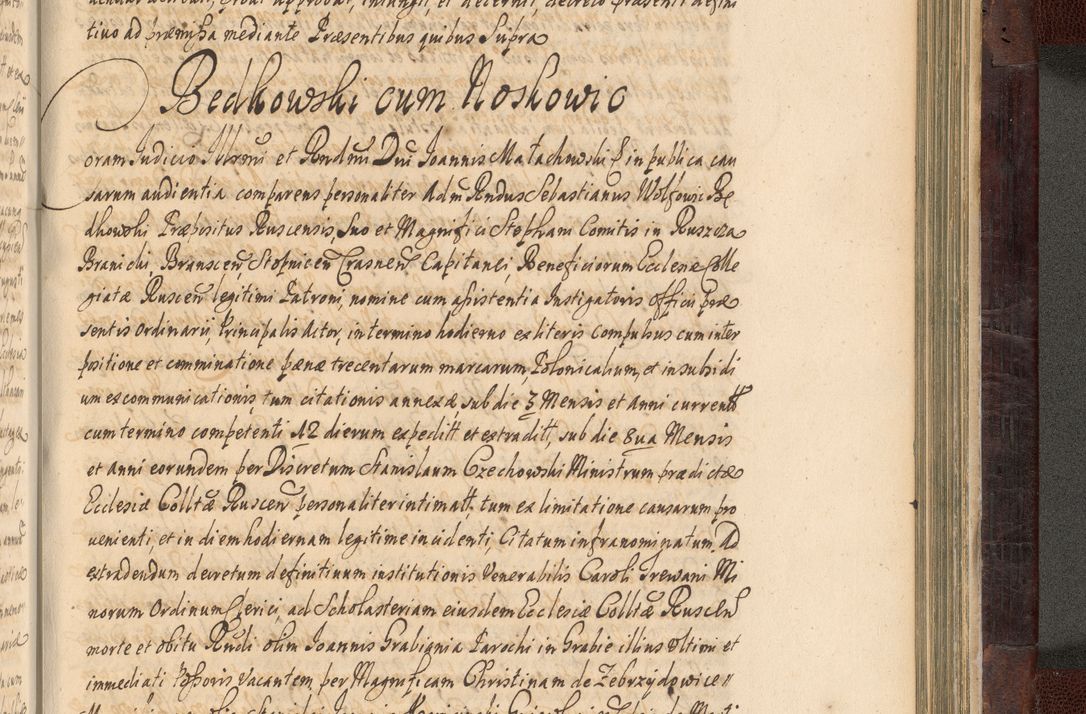 tiuo ad præmissa mediante Præsentibus quibus Supra
Bedkowski cum Noskowic
oram Iudicio Illrmi et Rndmi Dni Ioannis Małachowski & in publica cau
sarum audientia comparens personaliter Adm Rndus Sebastianus Wolfowic Be
dkowski Præpositus Ruscensis, Suo et Magnifici Stephani Comitis in Ruszcza
Branicki, Branscen Stopnicen Crasnen Capitanei, Beneficiorum Ecclesiæ Colle
giatæ Ruscen legitimi Patroni, nomine cum assistentia Instigatoris officii præ
sentis ordinarij, Principalis Actor, in termino hodierno ex literis compulsus cum inter
positione et comminatione pænæ trecentarum marcarum, Polonicalium, et in subsidi
um excommunicationis, tum citationis annexæ, sub die 3 Mensis et Anni currentt
cum termino competenti 12 dierum expeditt et extraditt, sub die 8ua Mensis
et anni eorundem per Discretum Stanislaum Czechowski Ministrum prædictæ
Ecclesiæ Colltæ Ruscen personaliter intimatt, tum ex limitatione causarum pro
uenienti, et in diem hodiernam legitime incidenti, Citatum infranominatum. Ad
extradendum decretum definitiuum institutionis Venerabilis Caroli Trewani Mi
norum Ordinum Clerici ad Scholasteriam eiusdem Ecclesiæ Colltæ Ruscen
morte et obitu Rndi olim Ioannis Grabiania Parochi in Grabie illius Vltimi et
immediati Possoris Vacantem, per Magnificam Christinam de Zebrzydowice